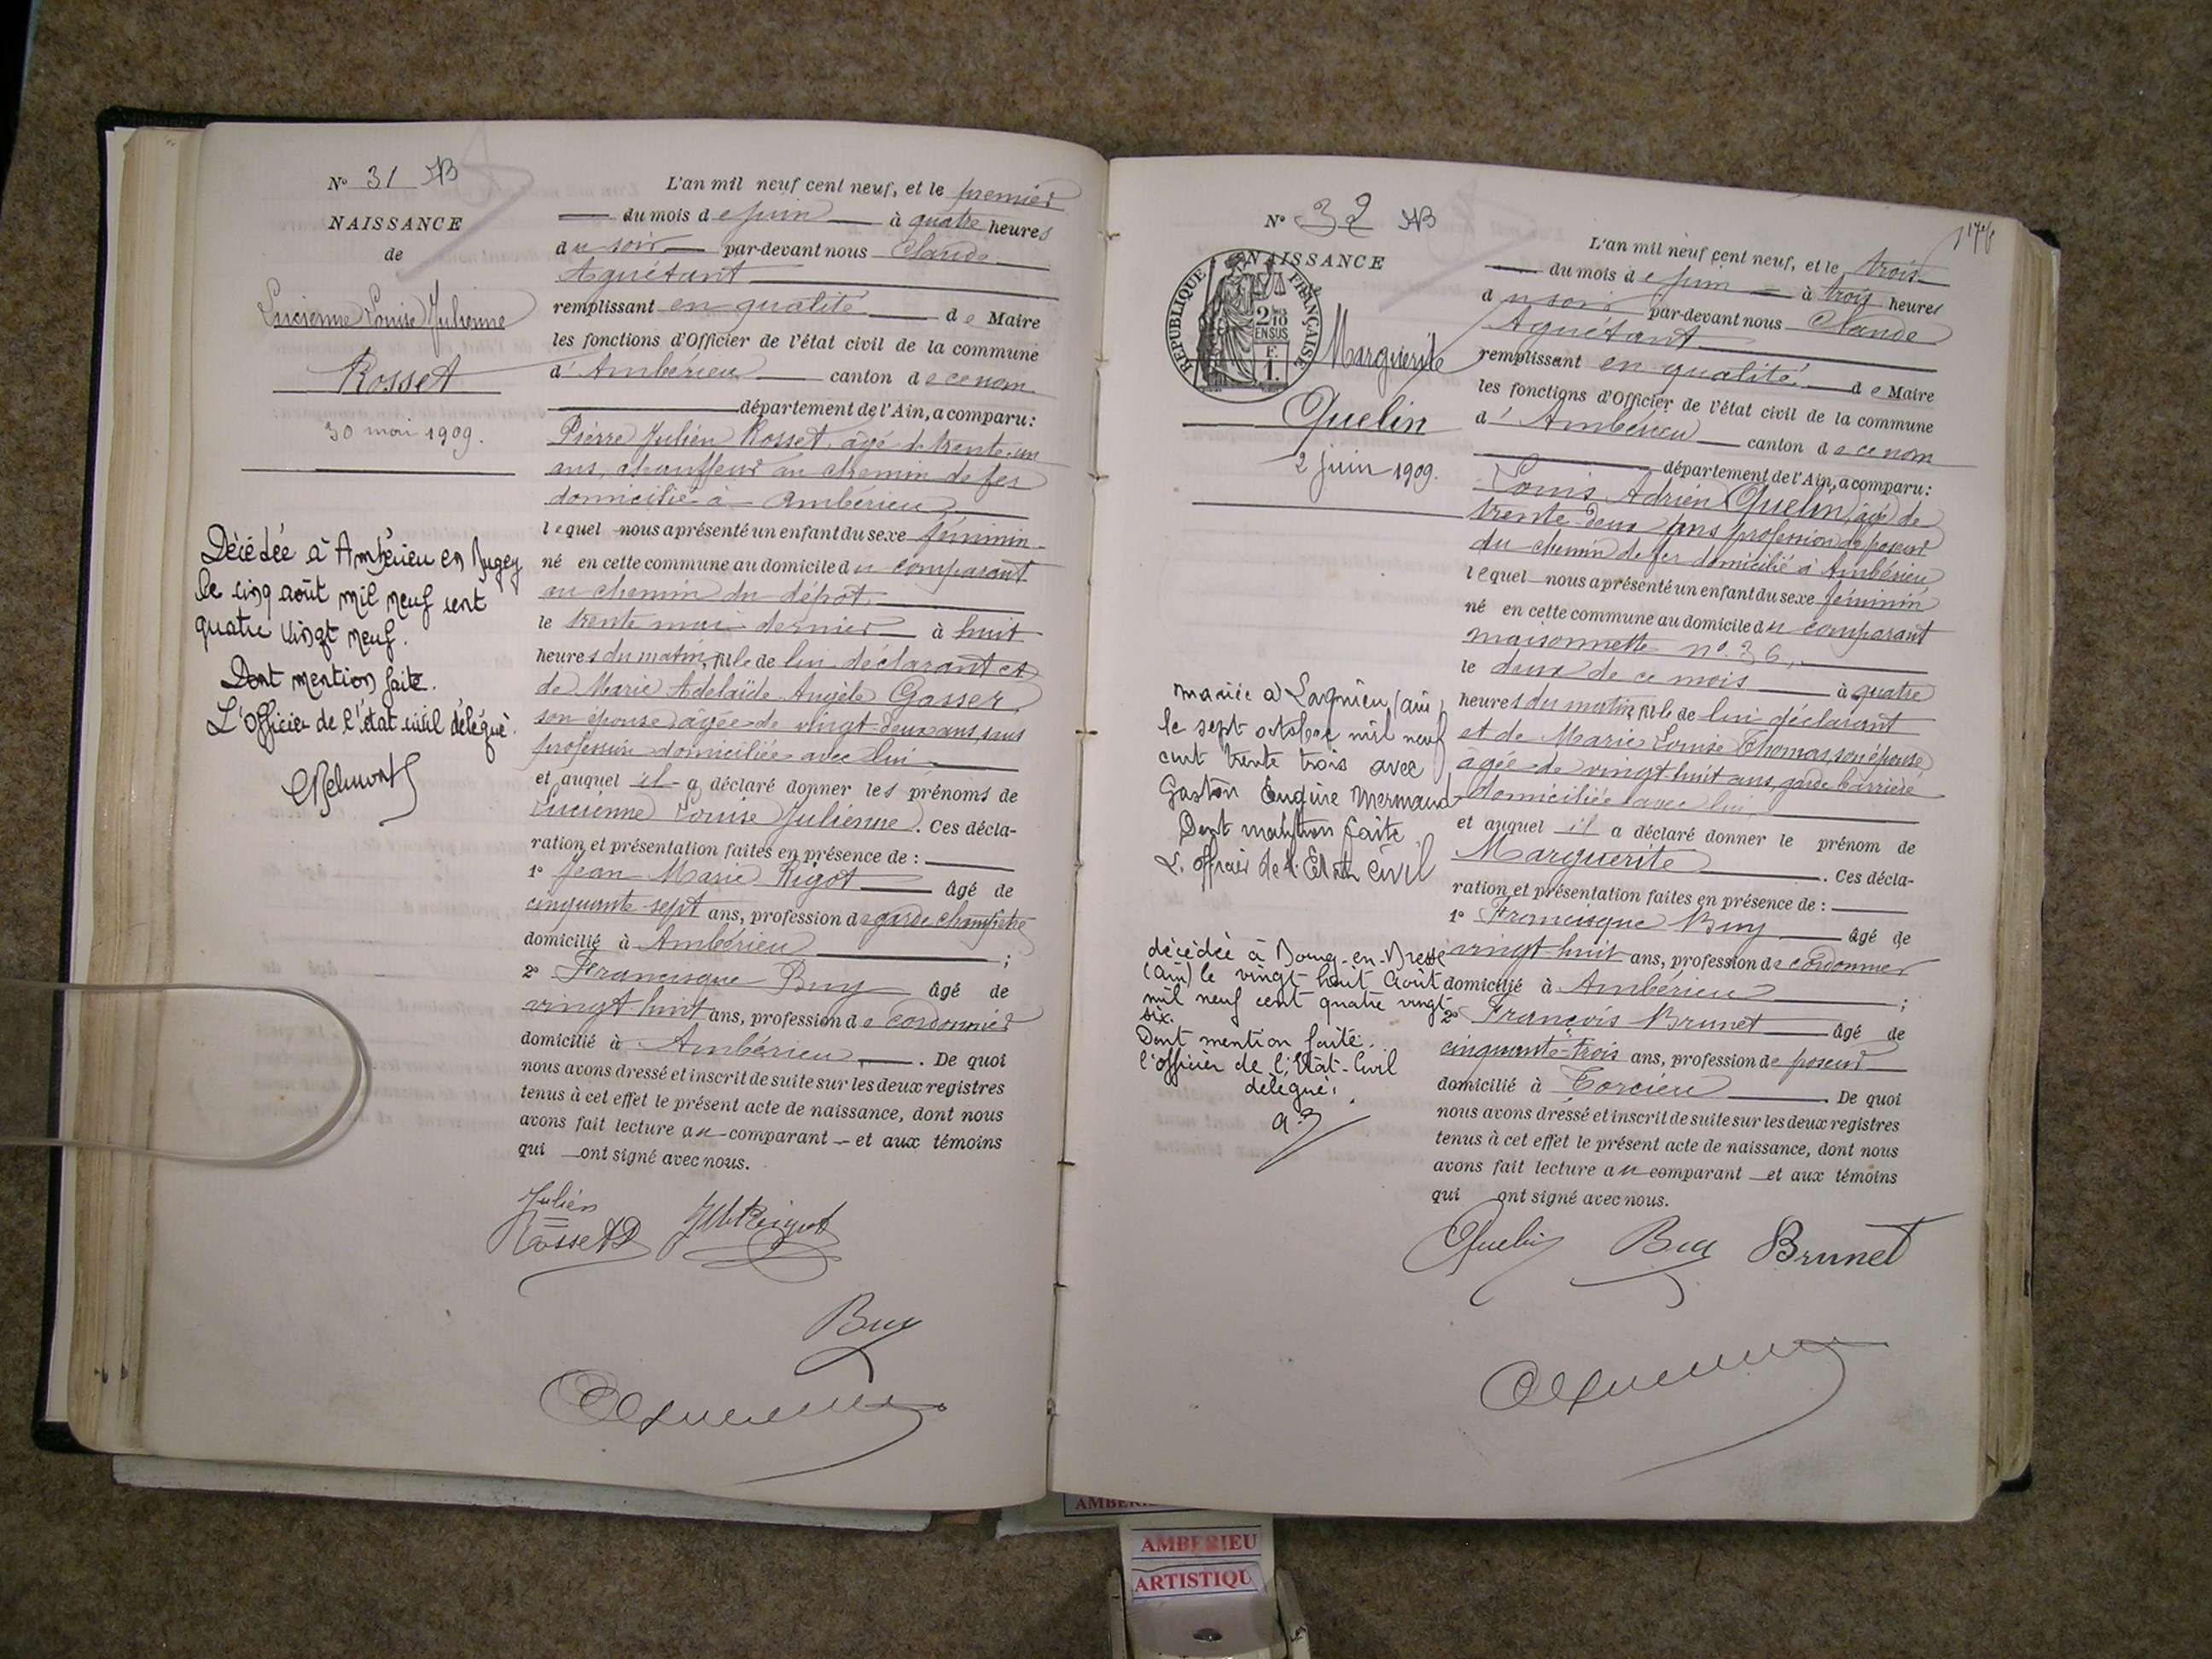 N° 31 AB
NAISSANCE
de
Lucienne Louise Julienne
Rosset
30 mai 1909.
Décédée à Ambérieu en Bugey
le cinq août mil neuf cent
quatre vingt neuf.
Dont mention faite.
L'Officier de l'état civil délégué.
L'an mil neuf cent neuf, et le premier
du mois de juin à quatre heures
du soir par-devant nous Claude
Aguétant
remplissant en qualité de Maire
les fonctions d'Officier de l'état civil de la commune
d'Ambérieu canton de ce nom
département de l'Ain, a comparu:
Pierre Julien Rosset, âgé de trente-un
ans, chauffeur au chemin de fer
domicilié à Ambérieu
lequel nous a présenté un enfant du sexe féminin
né en cette commune au domicile du comparant
au chemin du dépot
le trente mai dernier à huit
heures du matin, fille de lui déclarant et
de Marie Adelaïde Angèle Gasser
son épouse âgée de vingt-deux ans, sans
profession domiciliée avec lui
et auquel il a déclaré donner les prénoms de
Lucienne Louise Julienne. Ces décla-
ration et présentation faites en présence de :
1° Jean Marie Rigot âgé de
cinquante-sept ans, profession de garde champêtre
domicilié à Ambérieu ;
2° Francisque Buy âgé de
vingt-huit ans, profession de cordonnier
domicilié à Ambérieu. De quoi
nous avons dressé et inscrit de suite sur les deux registres
tenus à cet effet le présent acte de naissance, dont nous
avons fait lecture au comparant et aux témoins
qui ont signé avec nous.
Julien
Rosset JM Rigot
Buy
N° 32 AB
NAISSANCE
REPUBLIQUE FRANÇAISE
2/10
EN SUS
F.
1.
Marguerite
Quelin
2 juin 1909.
mariée à Lagnieu (ain)
le sept octobre mil neuf
cent trente trois avec
Gaston Eugène Mermand
Dont mention faite
L'officier de l'Etat Civil
décédée à Bourg-en-Bresse
(Ain) le vingt huit Août
mil neuf cent quatre vingt
six.
Dont mention faite.
l'officier de l'Etat-Civil
délégué,
L'an mil neuf cent neuf, et le trois
du mois de juin à trois heures
du soir par-devant nous Claude
Aguétant
remplissant en qualité de Maire
les fonctions d'Officier de l'état civil de la commune
d'Ambérieu canton de ce nom
département de l'Ain, a comparu:
Louis Adrien Quelin, âgé de
trente-deux ans profession de poseur
du chemin de fer domicilié à Ambérieu
lequel nous a présenté un enfant du sexe féminin
né en cette commune au domicile du comparant
maisonnette n° 36,
le deux de ce mois à quatre
heures du matin, fille de lui déclarant
et de Marie Louise Thomas, son épouse
âgée de vingt-huit ans, garde barrière
domiciliée avec lui
et auquel il a déclaré donner le prénom de
Marguerite. Ces décla-
ration et présentation faites en présence de :
1° Francisque Buy âgé de
vingt-huit ans, profession de cordonnier
domicilié à Ambérieu ;
2° François Brunet âgé de
cinquante-trois ans, profession de poseur
domicilié à Torcieu. De quoi
nous avons dressé et inscrit de suite sur les deux registres
tenus à cet effet le présent acte de naissance, dont nous
avons fait lecture au comparant et aux témoins
qui ont signé avec nous.
Quelin Buy Brunet
AMBERIEU
ARTISTIQU